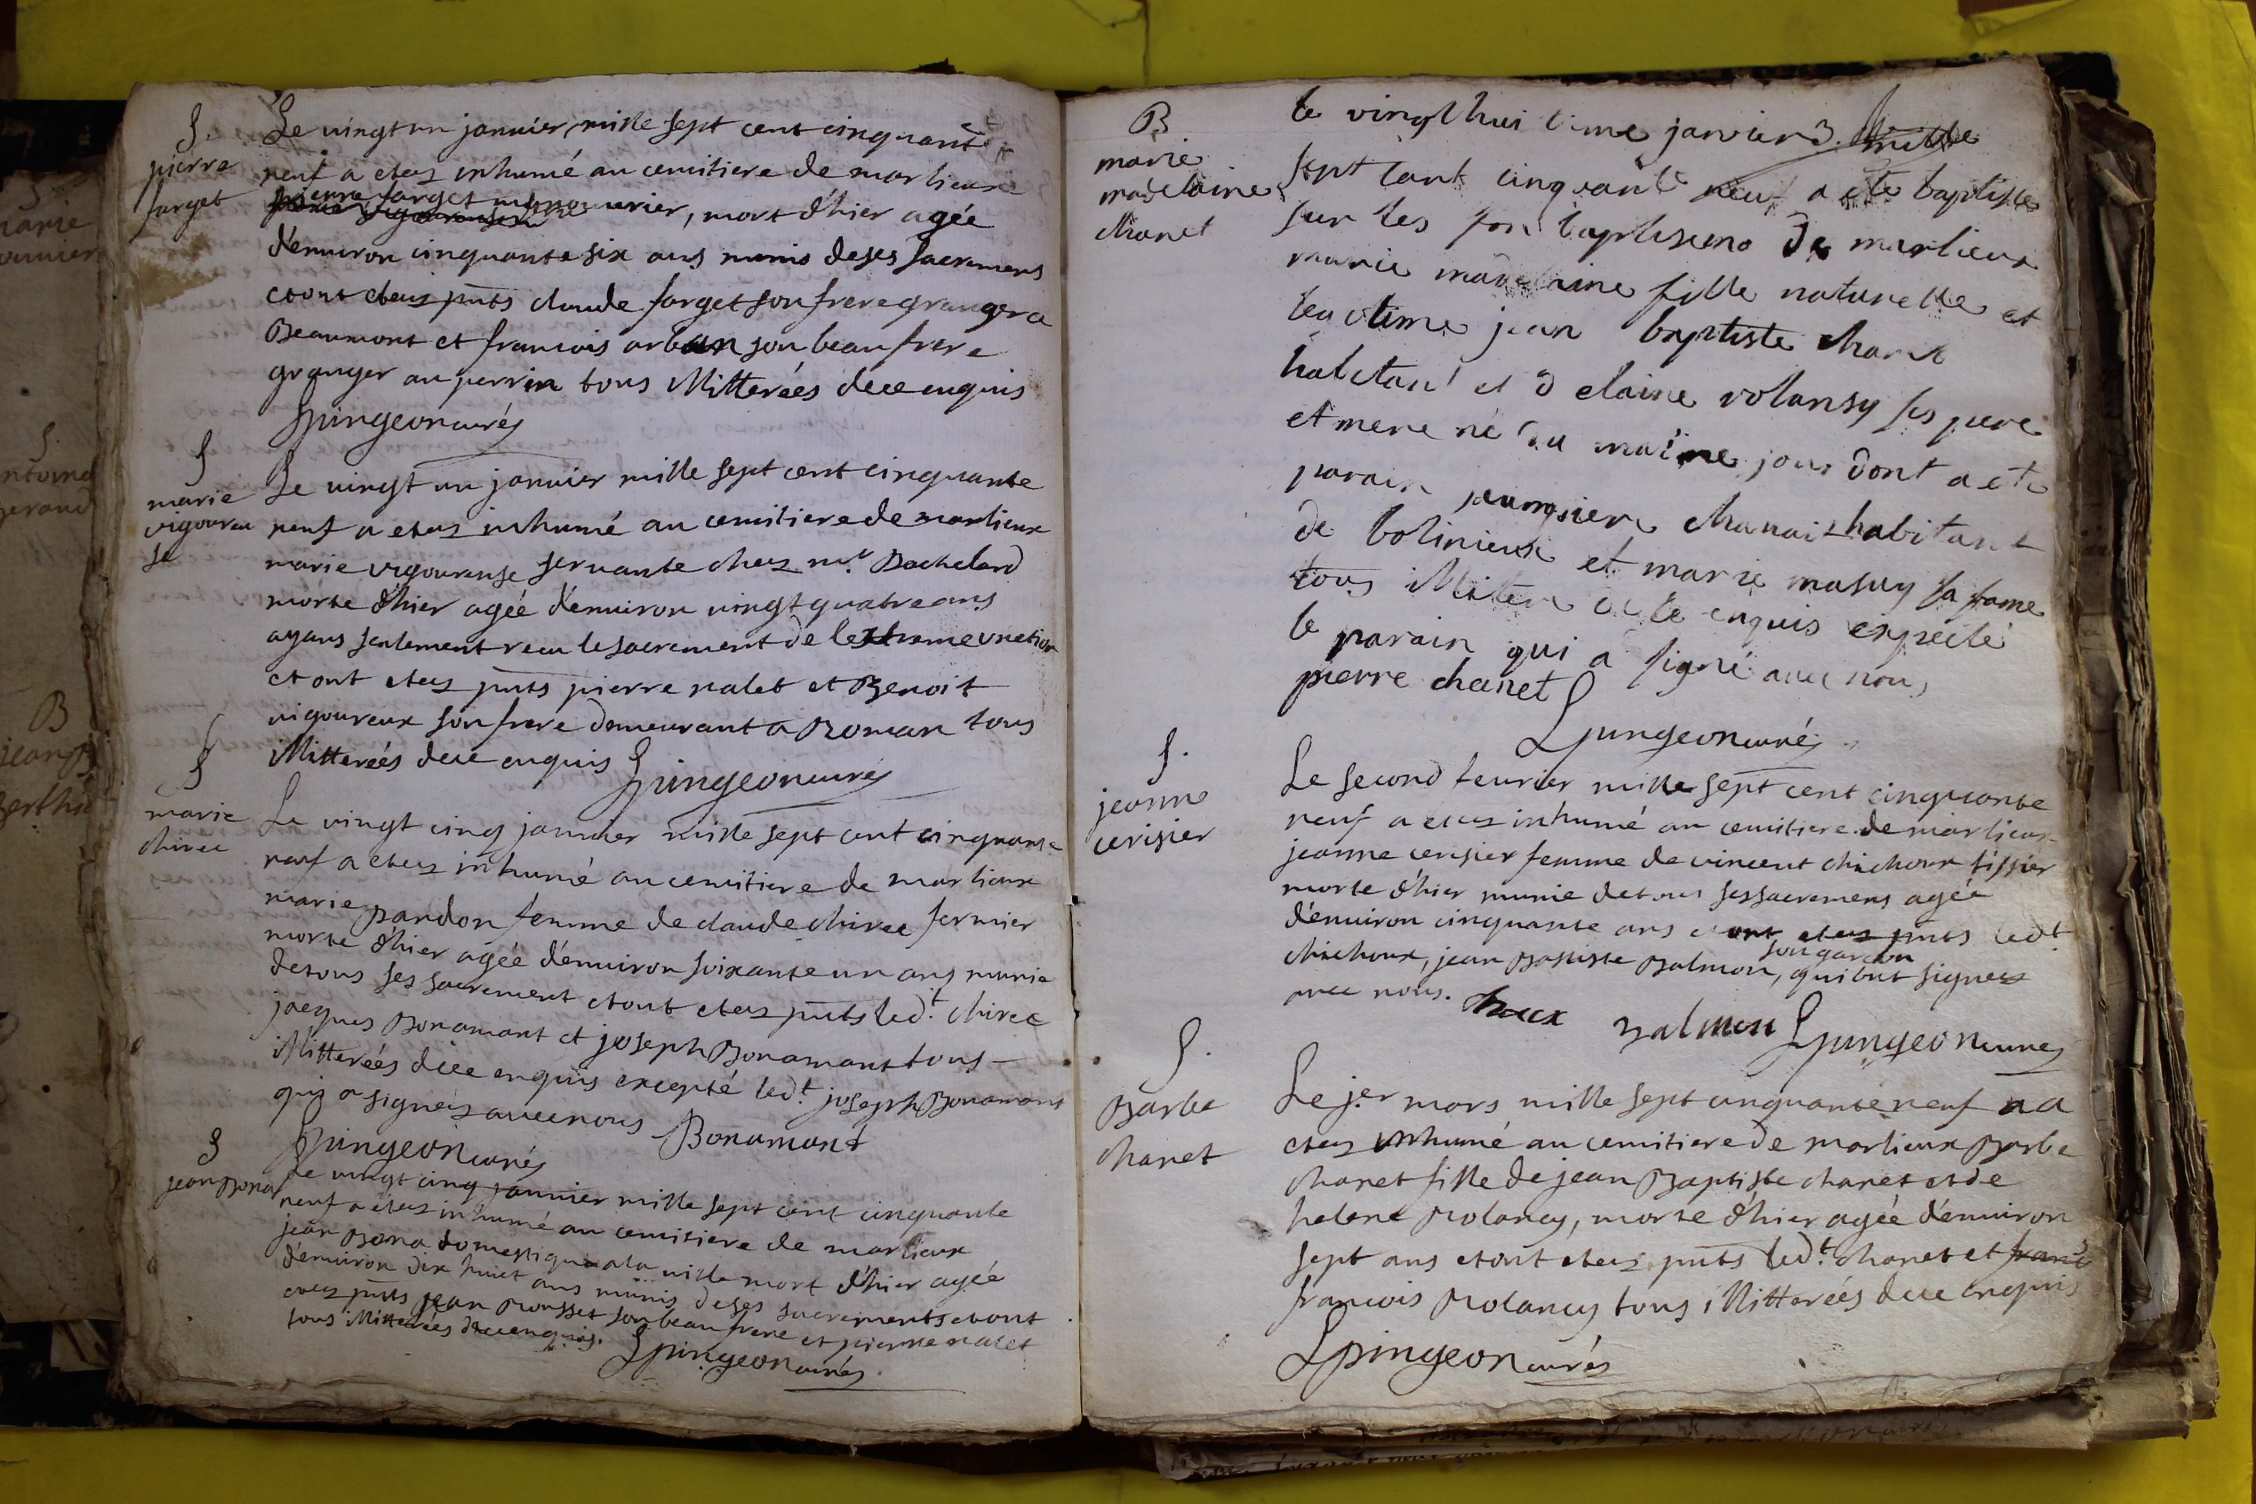 S.
pierre
forget
Le vingt un janvier mille sept cent cinquante
neuf a etez inhumé au cemitiere de marlieux
pierre forget manouvrier, mort d'hier agée
d'environ cinquante six ans munis de ses sacremens
et ont etez pnts claude forget son frere granger a
Beaumont et francois arban son beau frere
granger au perrin tous illitterées de ce enquis
Spingeon curés
S
marie
vigoureu
se
Le vingt un janvier mille sept cent cinquante
neuf a etez inhumé au cemitiere de marlieux
marie vigoureuse servante chez mr. Bachelard
morte d'hier agée d'environ vingt quatre ans
ayans seulement recu le sacrement de lextreme onction
et ont etez pnts pierre nalet et Benoit
vigoureux son frere demeurant a Roman tous
illitterées de ce enquis Spingeon curés
S
marie
chirec
Le vingt cinq janvier mille sept cent cinquante
neuf a etez inhumé au cemitiere de marlieux
marie pardon femme de claude chirec fermier
morte d'hier agée d'environ soixante un ans munie
de tous ses sacrement et ont etez pnts led.t chirec
jacques Bonamant et joseph Bonamant tous
illitterées de ce enquis excepté led.t joseph Bonamant
qui a signéz avec nous Bonamant
Spingeon curés
S
jean Bona
Le vingt cinq janvier mille sept cent cinquante
neuf a etez inhumé au cemitiere de marlieux
jean Bona domestique a la ville mort d'hier agée
d'environ dix huict ans munis de ses sacrements et ont
etez pnts jean Rousset son beau frere et pierre nalet
tous illitterées de ce enquis.
Spingeon curés
B
marie
madelaine
chanet
le vingt hui tieme janvier mille
sept cant cinquante neuf a ete baptisse
sur les fon baptiseme de marlieux
marie madelaine fille naturelle et
leagtime jean baptiste chanet
habitant et d elaine volansy ses pere
et mere né du maime jour dont a ete
parain pierre chanait habitant
de bolinieux et marie masuy sa fame
tous illitere de ce enquis expecté
le parain qui a signé avec nous
pierre chanet
Spingeon curés
S.
jeanne
cerisier
Le second feurier mille sept cent cinquante
neuf a etez inhumé au cemitiere de marlieux
jeanne cerisier femme de vincent chichoux tissier
morte d'hier munie de tous ses sacremens agée
d'environ cinquante ans et ont etez pnts led.t
chichoux, jean Baptiste Balmon, son garcon qui ont signez
avec nous.
Balmon Spingeon curés
S.
Barbe
chanet
Le jer mars mille sept cinquante neuf a
etez inhumé au cemitiere de marlieux Barbe
chanet fille de jean Baptiste chanet et de
helene Volancy, morte d'hier agée d'environ
sept ans et ont etez pnts led.t chanet et
francois Volancy tous illitterées de ce enquis
Spingeon curés